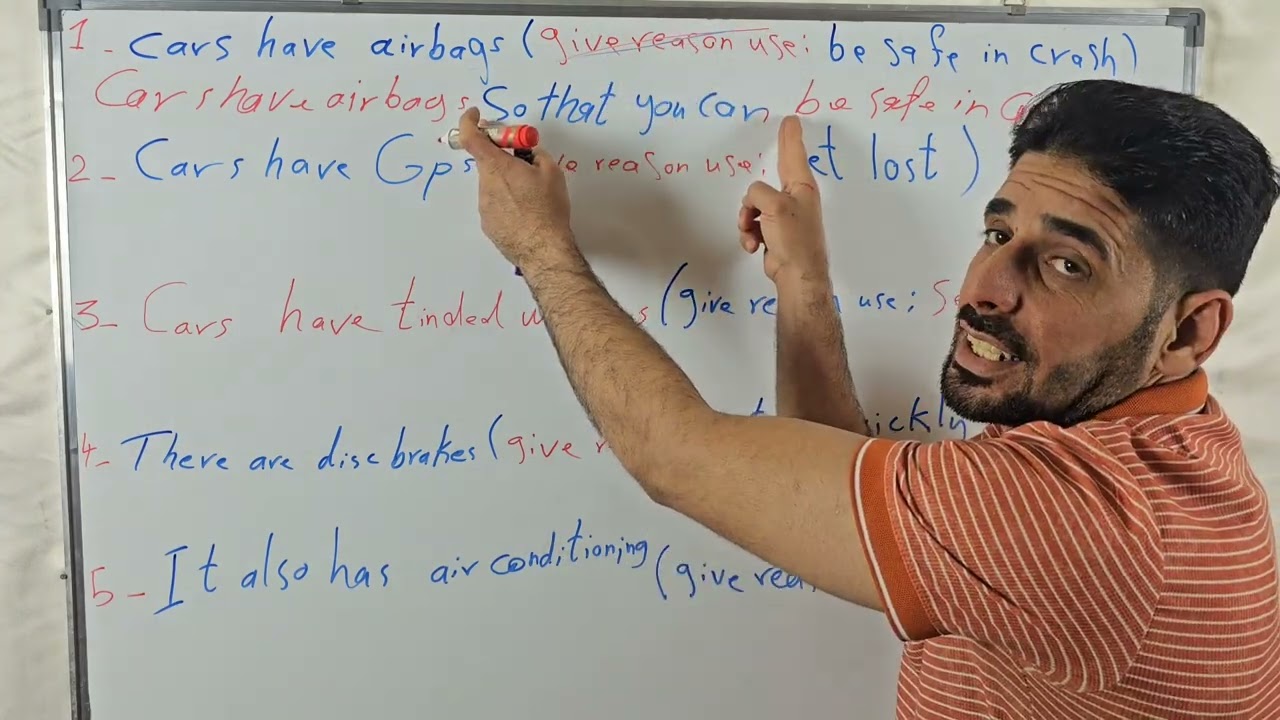 1 - Cars have airbags (give reason use: be safe in crash)
Cars have airbags So that you can be safe in
2 - Cars have Gps reason use: et lost )
3 - Cars have tinded (give re use;
4 - There are disc brakes (give
5 - It also has air conditioning (give rea